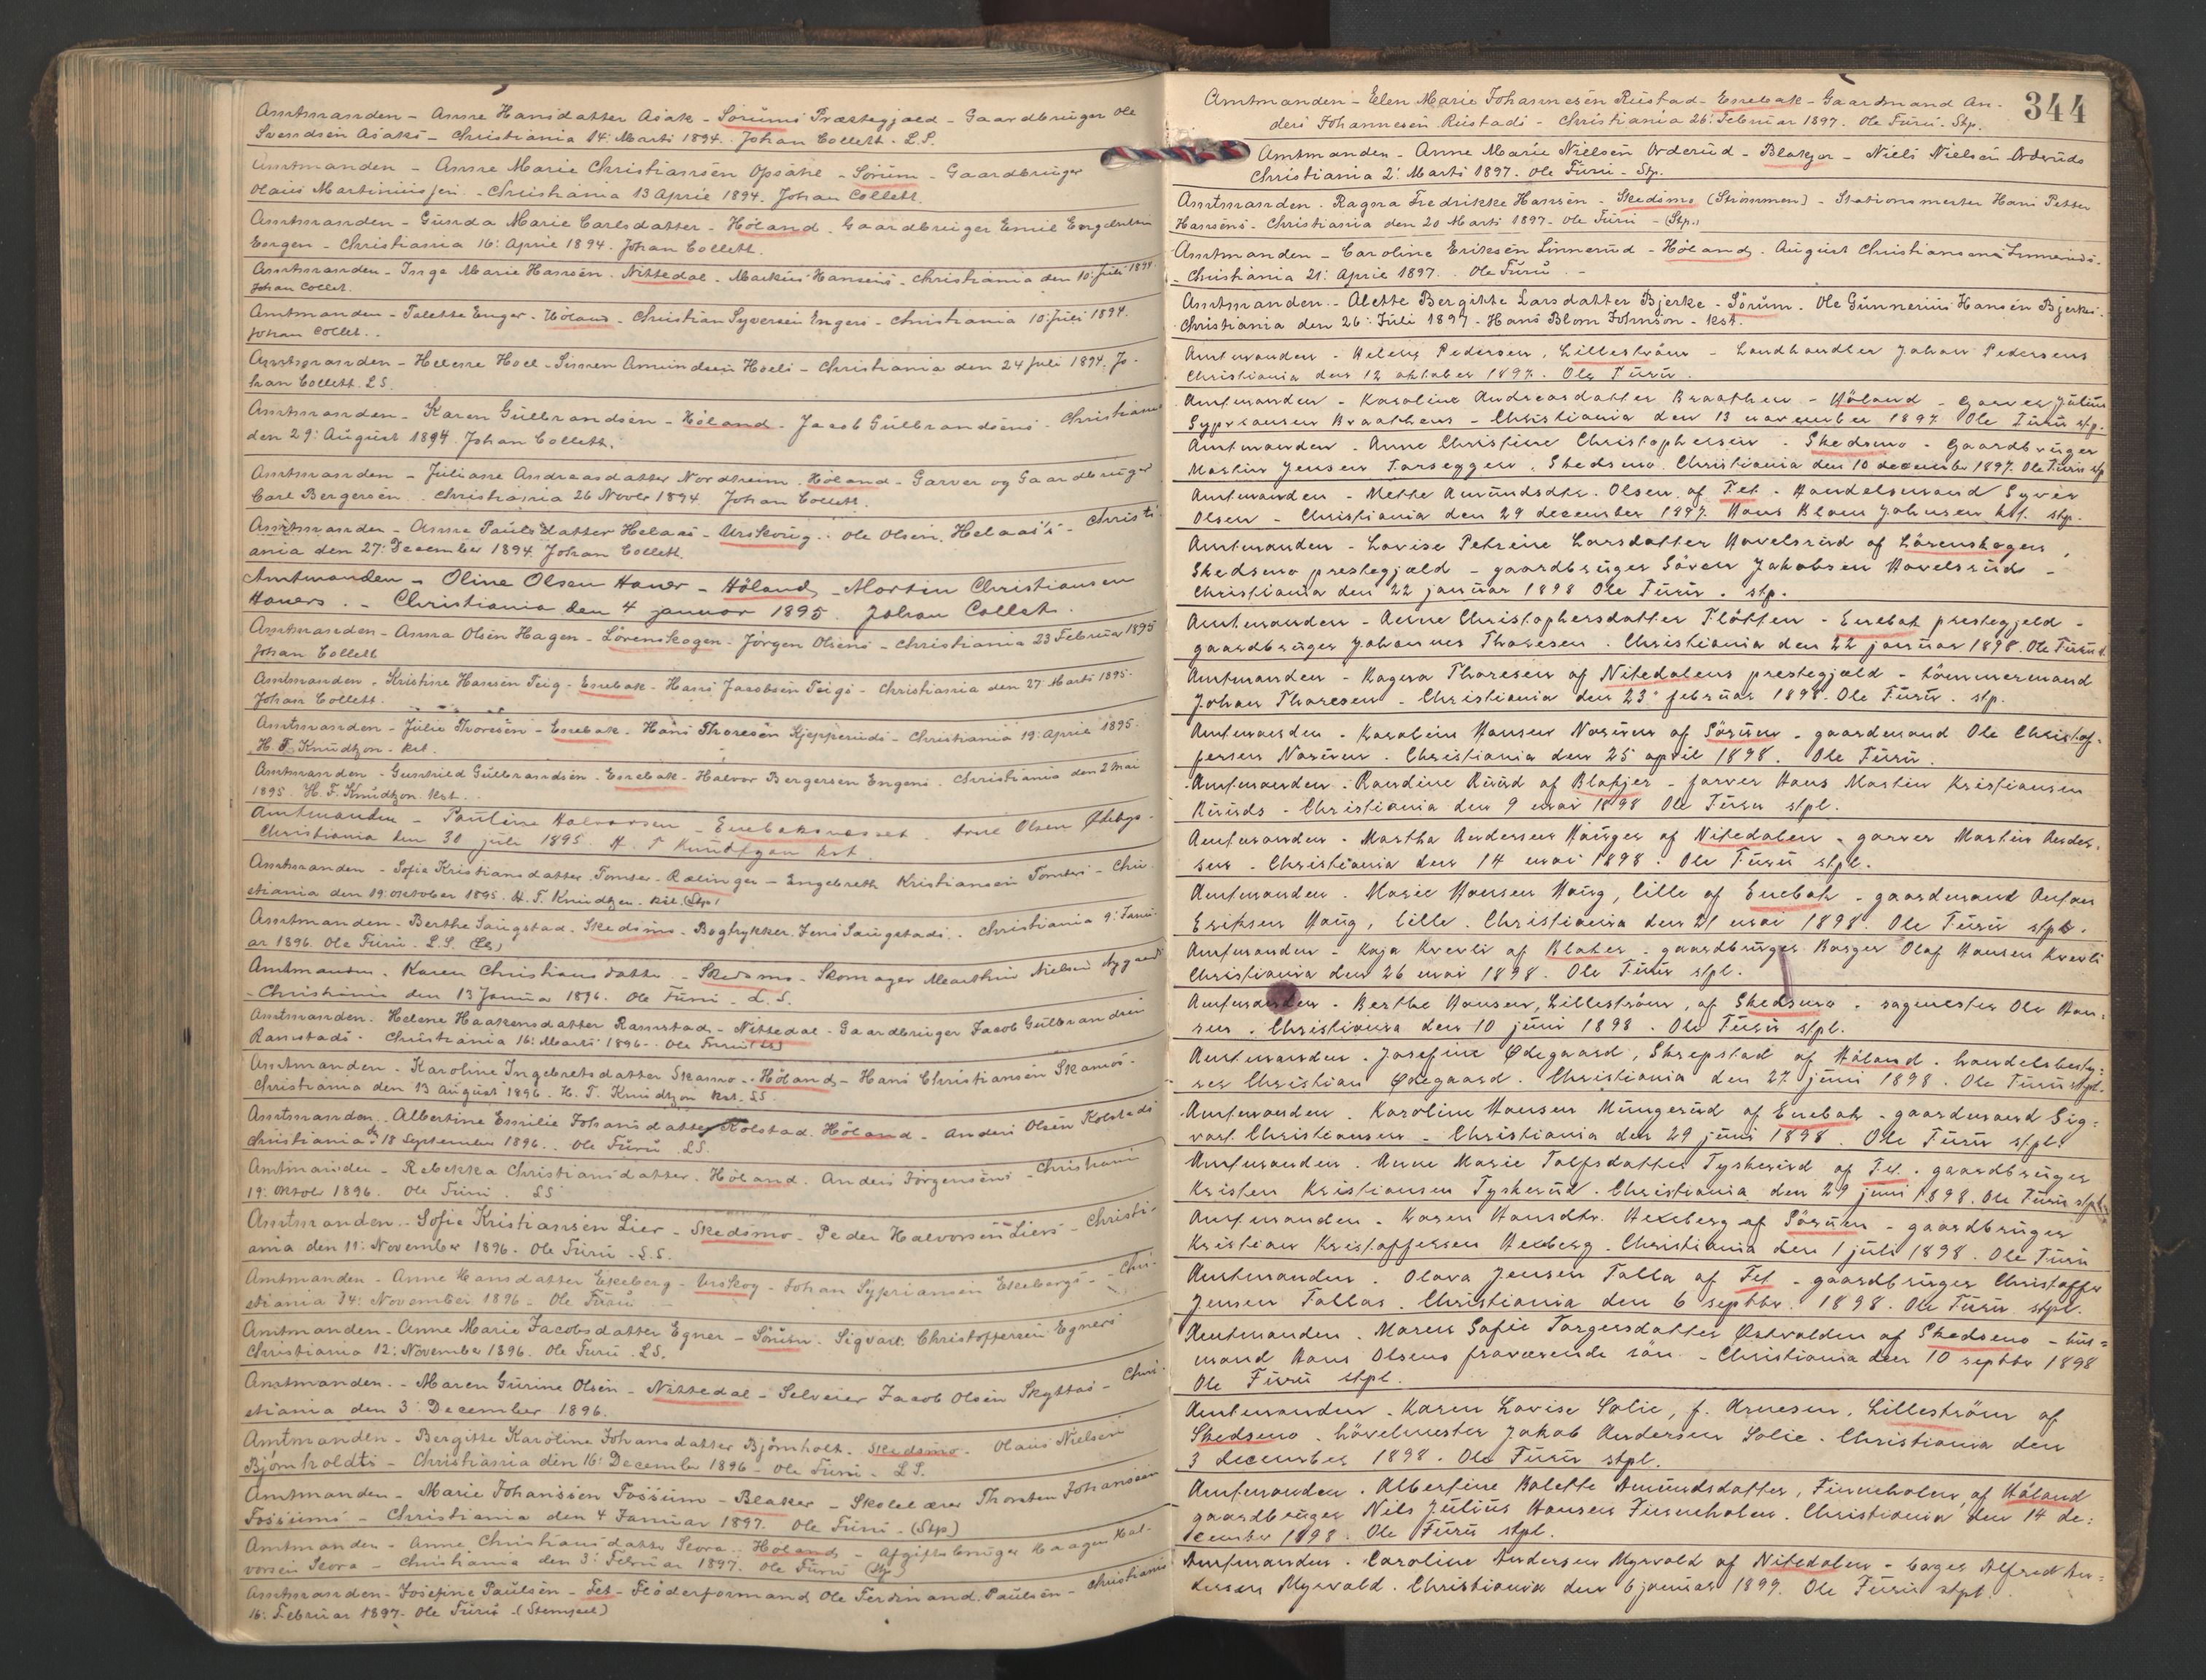 Amtmanden - Anne Hansdatter Asak - Sörums Præstegjæld - Gaardbruger Ole
Svendsen Asaks - Christiania 14: Marts 1894. Johan Collett. L.S.
Amtmanden - Anne Marie Christiansen Opsahl - Sörum - Gaardbruger
Olaus Martiniussen - Christiania 13 April 1894. Johan Collett.
Amtmanden - Gunda Marie Carlsdatter - Höland. Gaardbruger Emil
Borgen - Christiania 16: April 1894. Johan Collett.
Amtmanden - Inga Marie Hansen. Nittedal - Markus Hansens - Christiania den 10: Juli 1894.
Johan Collet.
Amtmanden - Talette Enger - Höland - Christian Syversen Engers - Christiania 10: Juli 1894.
Johan Collet.
Amtmanden - Helene Hoel - Simen Amundsen Hoels - Christiania den 24 Juli 1894. Jo-
han Collett. L.S.
Amtmanden - Karen Gulbrandsen - Höland - Jacob Gulbrandsens - Christiania
den 29: August 1894. Johan Collett.
Amtmanden - Juliane Andreasdatter Nordheim. Höland - Garver og Gaardbruger
Carl Bergersen. Christiania 26 Novbr 1894. Johan Collett.
Amtmanden - Anne Paulsdatter Helaas - Urskoug. Ole Olsen Helaas's - Christi-
ania den 27: December 1894. Johan Collett.
Amtmanden - Oline Olsen Haner - Höland - Morten Christiansen
Haners. - Christiania den 4 januar 1895. Johan Collett.
Amtmanden - Anna Olsen Hagen - Lörenskogen - Jörgen Olsens - Christiania 23 Februar 1895
Johan Collett
Amtmanden. Kristine Hansen Teig - Enebak - Hans Jacobsen Teigs - Christiania den 27: Marts 1895.
Johan Collett.
Amtmanden - Julie Thoresen - Enebak. Hans Thoresen Kjepperuds - Christiania 19: April 1895.
H. F. Knudtzon - kst.
Amtmanden - Gunhild Gulbrandsen. Enebak - Halvor Bergersen Engens. Christiania den 2 Mai
1895. H. F. Knudtzon. kst.
Amtmanden - Pauline Halvorsen - Enebaknesset. Arne Olsen
Christiania den 30 juli 1895. H. F. Knudtzon kst.
Amtmanden - Sofie Kristiansdatter Tomter - Rælingen - Engebreth Kristiansen Tomters - Chri-
stiania den 19: oktober 1895. H. F. Knudtzon. kst. (Stp)
Amtmanden. Berthe Saugstad. Skedsmo - Bogtrykker Jens Saugstads. Christiania 9: Janu-
ar 1896. Ole Furu. L.S. (LS)
Amtmanden. Karen Christiansdatter - Skedsmo - Skomager Marthin Nielsen Nygaards
- Christiania den 13 Januar 1896. Ole Furu. L.S.
Amtmanden. Helene Haakensdatter Ramstad - Nittedal - Gaardbruger Jacob Gulbrandsen
Ramstads. Christiania 16: Marts 1896. Ole Furu (LS)
Amtmanden. Karoline Ingebretsdatter Skamo - Höland - Hans Christiansen Skamos.
Christiania den 13 August 1896. H. F. Knudtzon kst. L.S.
Amtmanden. Albertine Emilie Johansdatter Kolstad. Höland - Anders Olsen Kolstads
Christiania d. 18 September 1896. Ole Furu. L.S.
Amtmanden - Rebekka Christiansdatter. Höland. Anders Jörgensens - Christiania
19: Oktobr 1896. Ole Furu. L.S.
Amtmanden - Sofie Kristiansen Lier - Skedsmo - Peder Halvorsen Liers - Christi-
ania den 11: November 1896. Ole Furu. L.S.
Amtmanden - Anne Hansdatter Eskeberg - Urskog - Johan Sypriansen Eskebergs - Chri-
stiania 14: November 1896 - Ole Furu
Amtmanden - Anne Marie Jacobsdatter Egner - Sörum. Sigvart Christoffersen Egners
Christiania 12: November 1896. Ole Furu. L.S.
Amtmanden. - Maren Gurine Olsen - Nittedal - Selveier Jacob Olsen Skyttas - Chri-
stiania den 3: December 1896.
Amtmanden - Bergitte Karoline Johansdatter Björnholt. Skedsmo. Olaus Nielsen
Björnholdts - Christiania den 16: December 1896 - Ole Furu - L.S.
Amtmanden - Marie Johansen Fossum - Blaker - Skolelærer Thorsten Johansen
Fossums - Christiania den 4 Januar 1897. Ole Furu - (Stp)
Amtmanden - Anne Christiansdatter Slora. Höland - Afgiftsbruger Haagen Hal-
vorsen Slora - Christiania den 3: Februar 1897. Ole Furu (Stp)
Amtmanden - Josefine Paulsen - Fet - Flöderformand Ole Ferdinand Paulsen - Christiania
16: Februar 1897. Ole Furu. (Stempel)
344
Amtmanden - Elen Marie Johannesen Rustad - Enebak - Gaardmand An-
ders Johannesen Rustads - Christiania 26: Februar 1897. Ole Furu. Stp.
Amtmanden - Anne Marie Nielsen Orderud - Blakjer - Niels Nielsen Orderuds
Christiania 2: Marts 1897. Ole Furu - Stp.
Amtmanden. Ragna Fredrikke Hansen - Skedsmo (Strömmen) - Stationsmester Hans Petter
Hansens. Christiania den 20 Marts 1897. Ole Furu - (Stp.)
Amtmanden - Caroline Eriksen Linnerud - Höland. August Christiansen Linneruds.
Christiania 21: April 1897. Ole Furu. -
Amtmanden - Alette Bergitte Larsdatter Bjerke - Sörum. Ole Gunnerius Hansen Bjerkes.
Christiania den 26: Juli 1897. Hans Blom Johnson - kst.
Amtmanden - Helena Pedersen, Lilleström - Landhandler Johan Pedersens
Christiania den 12 oktober 1897. Ole Furu.
Amtmanden - Karoline Andreasdatter Braathen - Höland - garver Julius
Sypriansen Braathens - Christiania den 13 november 1897 Ole Furu stp.
Amtmanden - Anne Christine Christophersen - Skedsmo - gaardbruger
Martin Jensen Torseggen. Skedsmo. Christiania den 10 december 1897. Ole Furu stp
Amtmanden - Mette Amundsdtr. Olsen af Fet - Handelsmand Syver
Olsen - Christiania den 29 december 1897. Hans Blom Johnsen kst. stp.
Amtmanden - Lovise Petrine Larsdatter Hovelsrud af Lörenskogen,
Skedsmo prestegjæld - gaardbruger Sören Jakobsen Hovelsrud -
Christiania den 22 januar 1898 Ole Furu. stp.
Amtmanden - Anne Christophersdatter Flötten - Enebak prestegjeld -
gaardbruger Johannes Thoresen. Christiania den 22 januar 1898. Ole Furu
Amtmanden - Ragna Thoresen af Nitedalens prestegjæld - tömmermand
Johan Thoresen - Christiania den 23 februar 1898. Ole Furu. stp.
Amtmanden - Karoline Hansen Norum af Sörum - gaardmand Ole Christof-
fersen Norum. Christiania den 25 april 1898. Ole Furu.
Amtmanden - Randine Ruud af Blakjer - farver Hans Martin Kristiansen
Ruuds - Christiania den 9 mai 1898 Ole Furu stpl.
Amtmanden - Martha Andersen Hauger af Nitedalen - garver Martin Ander-
sen - Christiania den 14 mai 1898. Ole Furu stpl.
Amtmanden. Marie Hansen Haug, lille af Enebak - gaardmand Anton
Eriksen Haug, lille. Christiania den 21 mai 1898. Ole Furu stpl.
Amtmanden - Kaja Kverli af Blaker. gaardbruger Borger Olaf Hansen Kverli
Christiania den 26 mai 1898. Ole Furu stpl.
Amtmanden - Berthe Hansen, Lilleström, af Skedsmo. sagmester Ole Han-
sen. Christiania den 10 juni 1898. Ole Furu stpl.
Amtmanden. Josefine Ødegaard, Skrepstad af Höland. handelsbesty-
rer Christian Ødegaard. Christiania den 27 juni 1898. Ole Furu stpl.
Amtmanden. Karoline Hansen Mungerud af Enebak - gaardmand Sig-
vart Christiansen - Christiania den 29 juni 1898. Ole Furu stpl.
Amtmanden. Anne Marie Tolfsdatter Tyskerud af Fet. gaardbruger
Kristen Kristiansen Tyskerud. Christiania den 29 juni 1898. Ole Furu stpl.
Amtmanden - Karen Hansdtr. Hexeberg af Sörum - gaardbruger
Kristian Kristoffersen Hexberg. Christiania den 1 juli 1898. Ole Furu
Amtmanden. Olava Jensen Falla af Fet - gaardbruger Christoffer
Jensen Fallas. Christiania den 6 septbr. 1898. Ole Furu stpl.
Amtmanden. Maren Sofie Torgersdatter Østvolden af Skedsmo - hus-
mand Hans Olsens fraværende sön. - Christiania den 10 septbr 1898
Ole Furu stpl.
Amtmanden. Karen Lovise Solie, f. Arnesen. Lilleström af
Skedsmo. hövelmester Jakob Andersen Solie. Christiania den
3 december 1898. Ole Furu stpl.
Amtmanden. Albertine Bolette Amundsdatter, Finneholen, af Höland
gaardbruger Nils Julius Hansen Finneholen. Christiania den 14 de-
cember 1898. Ole Furu stpl.
Amtmanden. Caroline Andersen Myrvold af Nitedalen - bager Alfred An-
dersen Myrvold. Christiania den 6 januar 1899. Ole Furu stpl.